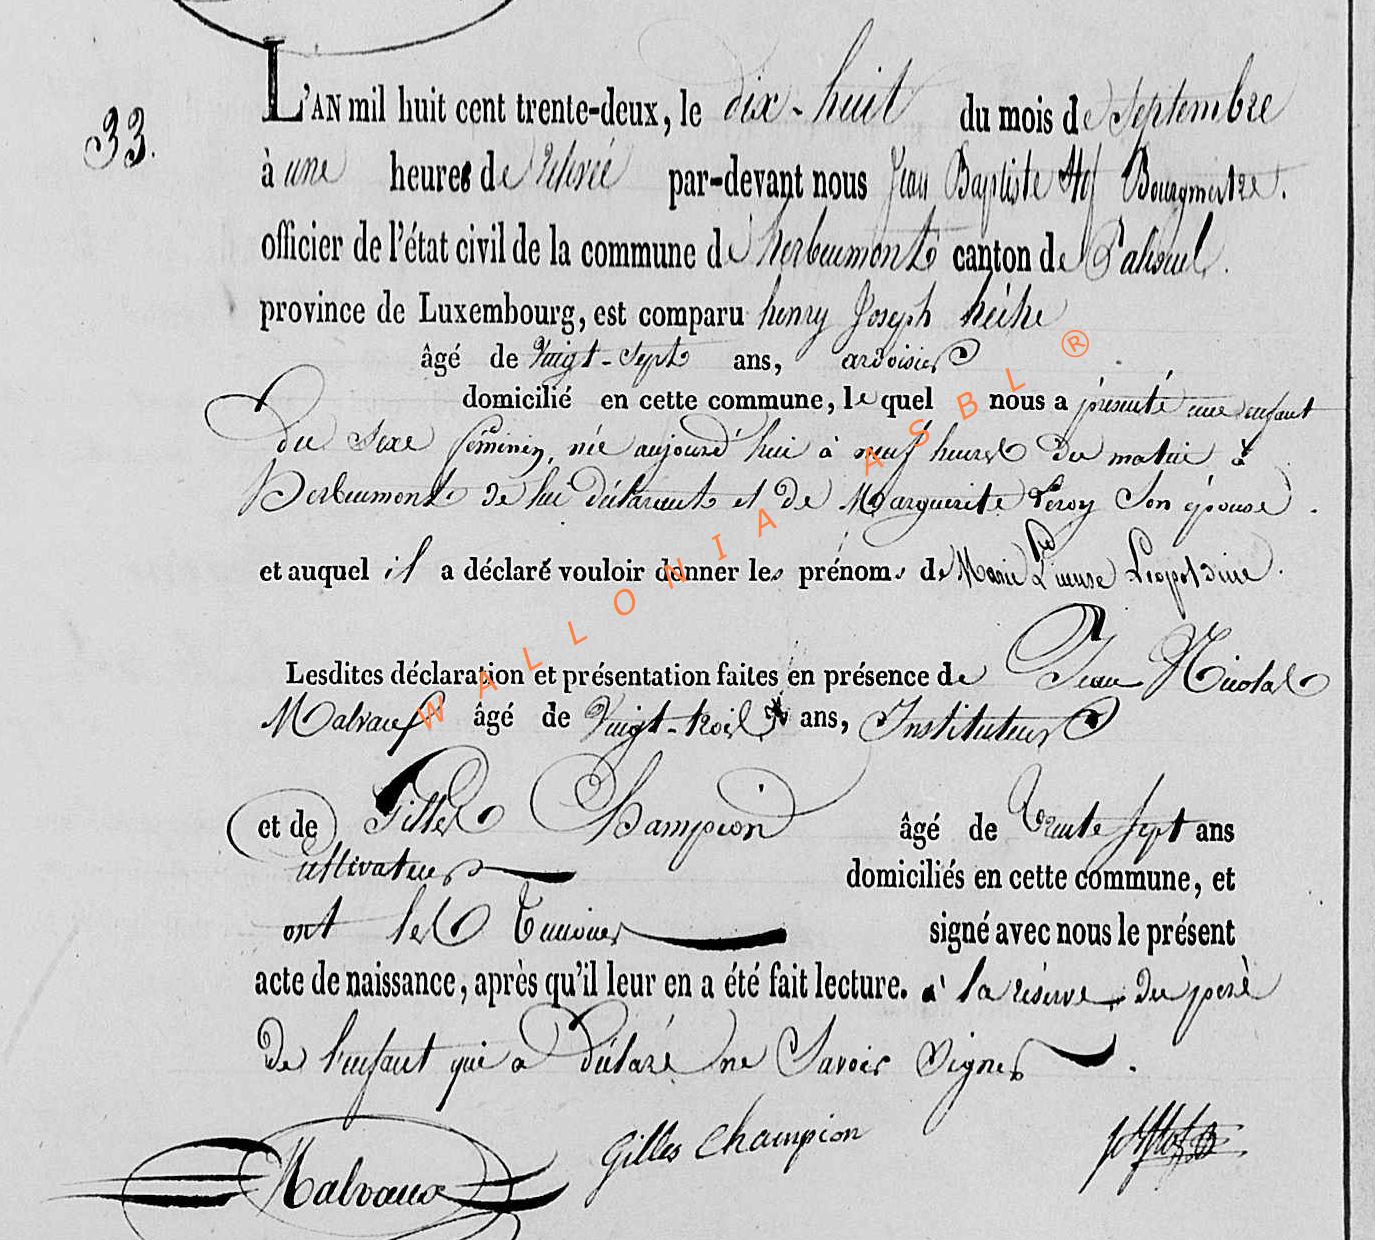 33.
L'AN mil huit cent trente-deux, le dix-huit du mois de Septembre
à une heures de relevée par-devant nous Jean Baptiste Bourgmestre.
officier de l'état civil de la commune de herbeumont canton de Paliseul.
province de Luxembourg, est comparu henry Joseph
âgé de Vingt-Sept ans, ardoisier
domicilié en cette commune, lequel nous a présenté une enfant
du Sexe féminin, née aujourd'hui à neuf heures du matin à
Herbeumont de lui déclarant et de Marguerite Leroy Son épouse.
et auquel il a déclaré vouloir donner les prénoms de Marie Leopoldine.
Lesdites déclaration et présentation faites en présence de Jean Nicolas
Malvaux âgé de Vingt-trois ans, Instituteur
et de Gilles Champion âgé de Trente Sept ans
cultivateur domiciliés en cette commune, et
ont les Temoins signé avec nous le présent
acte de naissance, après qu'il leur en a été fait lecture. à la réserve du père
de l'enfant qui a déclaré ne Savoir Signer.
Malvaux Gilles Champion
WALLONIA ASBL ®